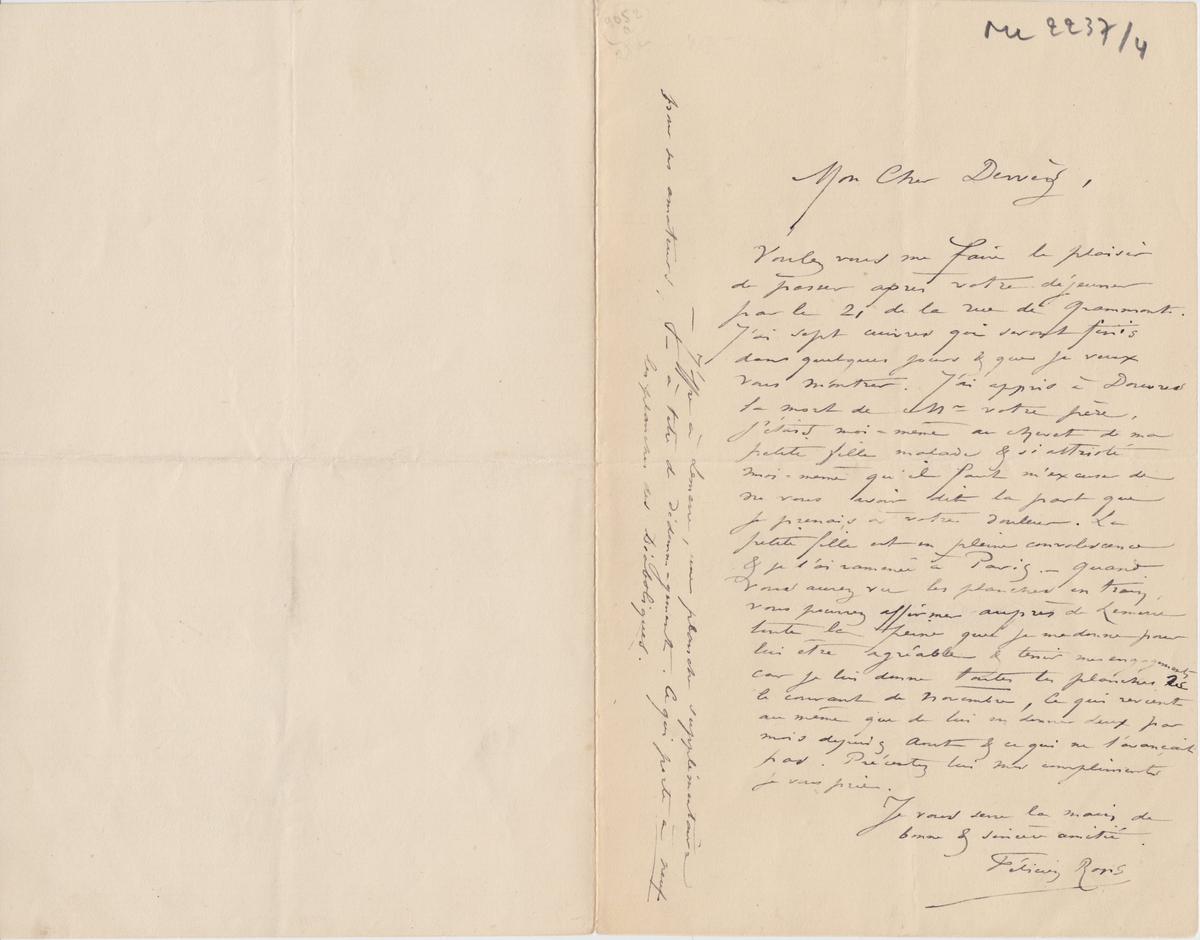 Mu 2237/4
Mon Cher Derveès,
Voulez vous me faire le plaisir
de passer après votre déjeuner
par le 21 de la rue de Grammont.
J'ai sept œuvres qui seront finis
dans quelques jours & que je veux
vous montrer. J'ai appris à Douvres
la mort de Mr votre père,
j'étais moi-même au chevet de ma
petite fille malade & si attristé
moi-même qu'il faut m'excuser de
ne vous avoir dit la part que
je prenais à votre douleur. La
petite fille est en pleine convalescence
& je l'ai ramenée à Paris. – Quand
vous aurez vu les planches en train,
vous pourrez affirmer auprès de Lemerre
toute la peine que je me donne pour
lui être agréable & tenir mes engagements
car je lui donne toutes les planches
le courant de Novembre, ce qui revient
au même que de lui en donner deux par
mois depuis Aout & ce qui ne l'avançait
pas. Présentez lui mes compliments
je vous prie.
Je vous serre la main de
bonne & sincère amitié.
Félicien Rops
– J'offre à Lemerre, une planche supplémentaire
pour ses amateurs, & à titre de dédommagement. Ce qui porte à neuf
les planches des Diaboliques.